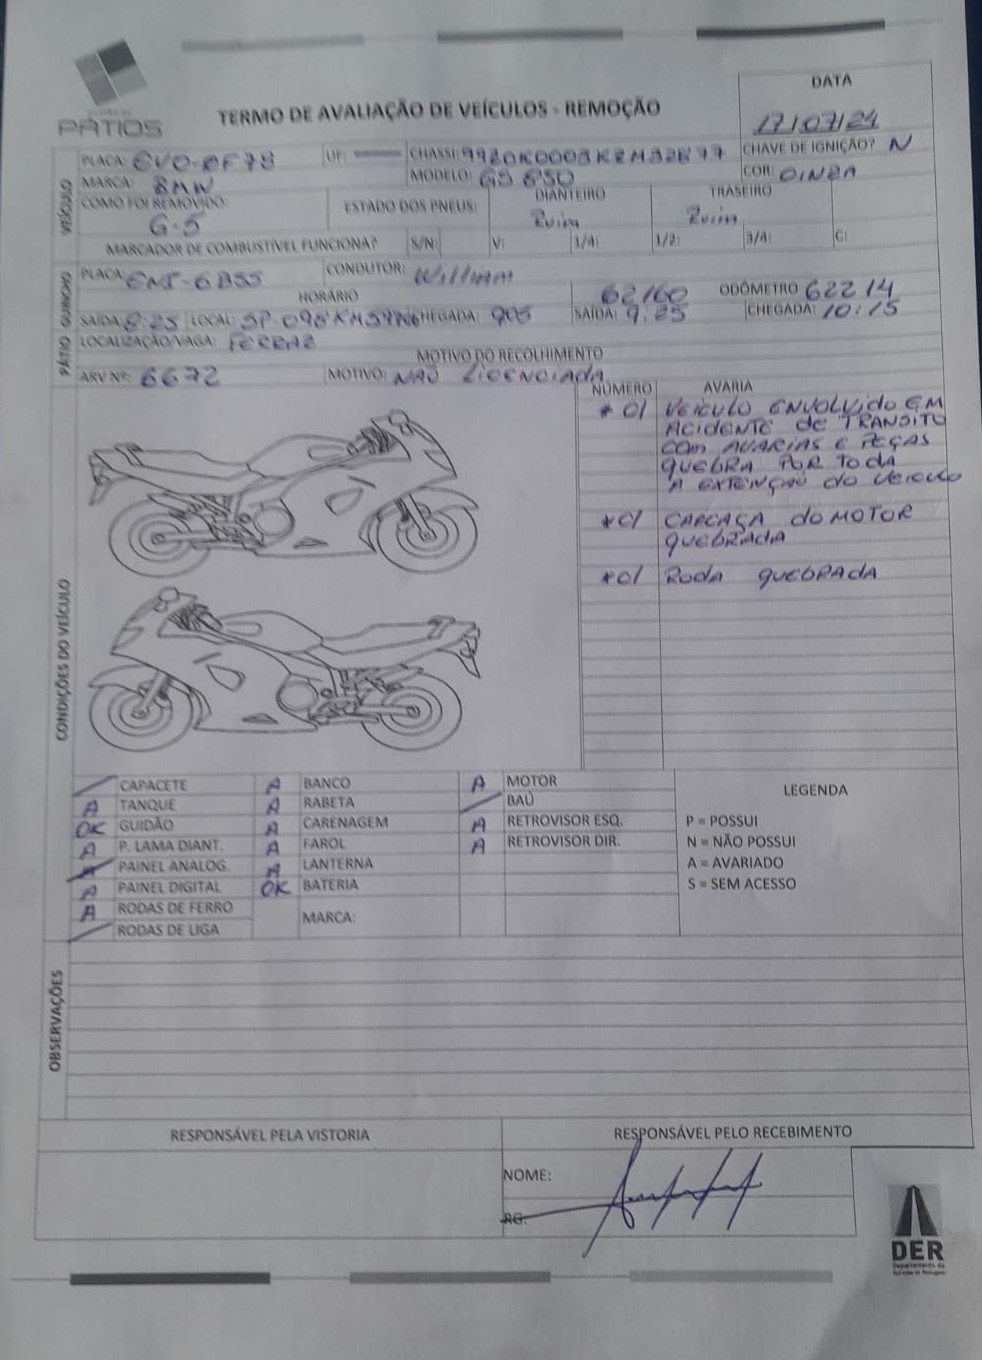 DATA
TERMO DE AVALIAÇÃO DE VEÍCULOS - REMOÇÃO
PÁTIOS
17/07/24
PLACA: EVO-0F78 UF: CHASSI: CHAVE DE IGNIÇÃO? N
MARCA: BMW MODELO: GS 650 COR: CINZA
COMO FOI REMOVIDO: G-5 ESTADO DOS PNEUS: DIANTEIRO Ruim TRASEIRO Ruim
MARCADOR DE COMBUSTÍVEL FUNCIONA? S/N: V: 1/4: 1/2: 3/4: C:
VEÍCULO
PLACA: CONDUTOR: William
HORÁRIO 62160 ODÔMETRO 62214
SAÍDA: 8:25 LOCAL: CHEGADA: 905 SAÍDA: 9:25 CHEGADA: 10:15
GUINCHO
LOCALIZAÇÃO/VAGA: FERRAZ
MOTIVO DO RECOLHIMENTO
ARV Nº: 6672 MOTIVO: NAÕ LICENCIADA
PÁTIO
NÚMERO AVARIA
* C/ VEICULO ENVOLVIdo EM
ACIDENTE de TRANSITO
COM AVARIAS E PEÇAS
QUEBRA POR TODA
A EXTENÇÃO do VEICULO
* C/ CARCAÇA do MOTOR
QUEBRADA
* C/ RODA QUEBRADA
CONDIÇÕES DO VEÍCULO
CAPACETE A BANCO A MOTOR
A TANQUE A RABETA BAÚ
OK GUIDÃO A CARENAGEM A RETROVISOR ESQ.
A P. LAMA DIANT. A FAROL A RETROVISOR DIR.
PAINEL ANALOG. A LANTERNA
A PAINEL DIGITAL OK BATERIA
A RODAS DE FERRO MARCA:
RODAS DE LIGA
LEGENDA
P = POSSUI
N = NÃO POSSUI
A = AVARIADO
S = SEM ACESSO
OBSERVAÇÕES
RESPONSÁVEL PELA VISTORIA RESPONSÁVEL PELO RECEBIMENTO
NOME:
RG:
DER